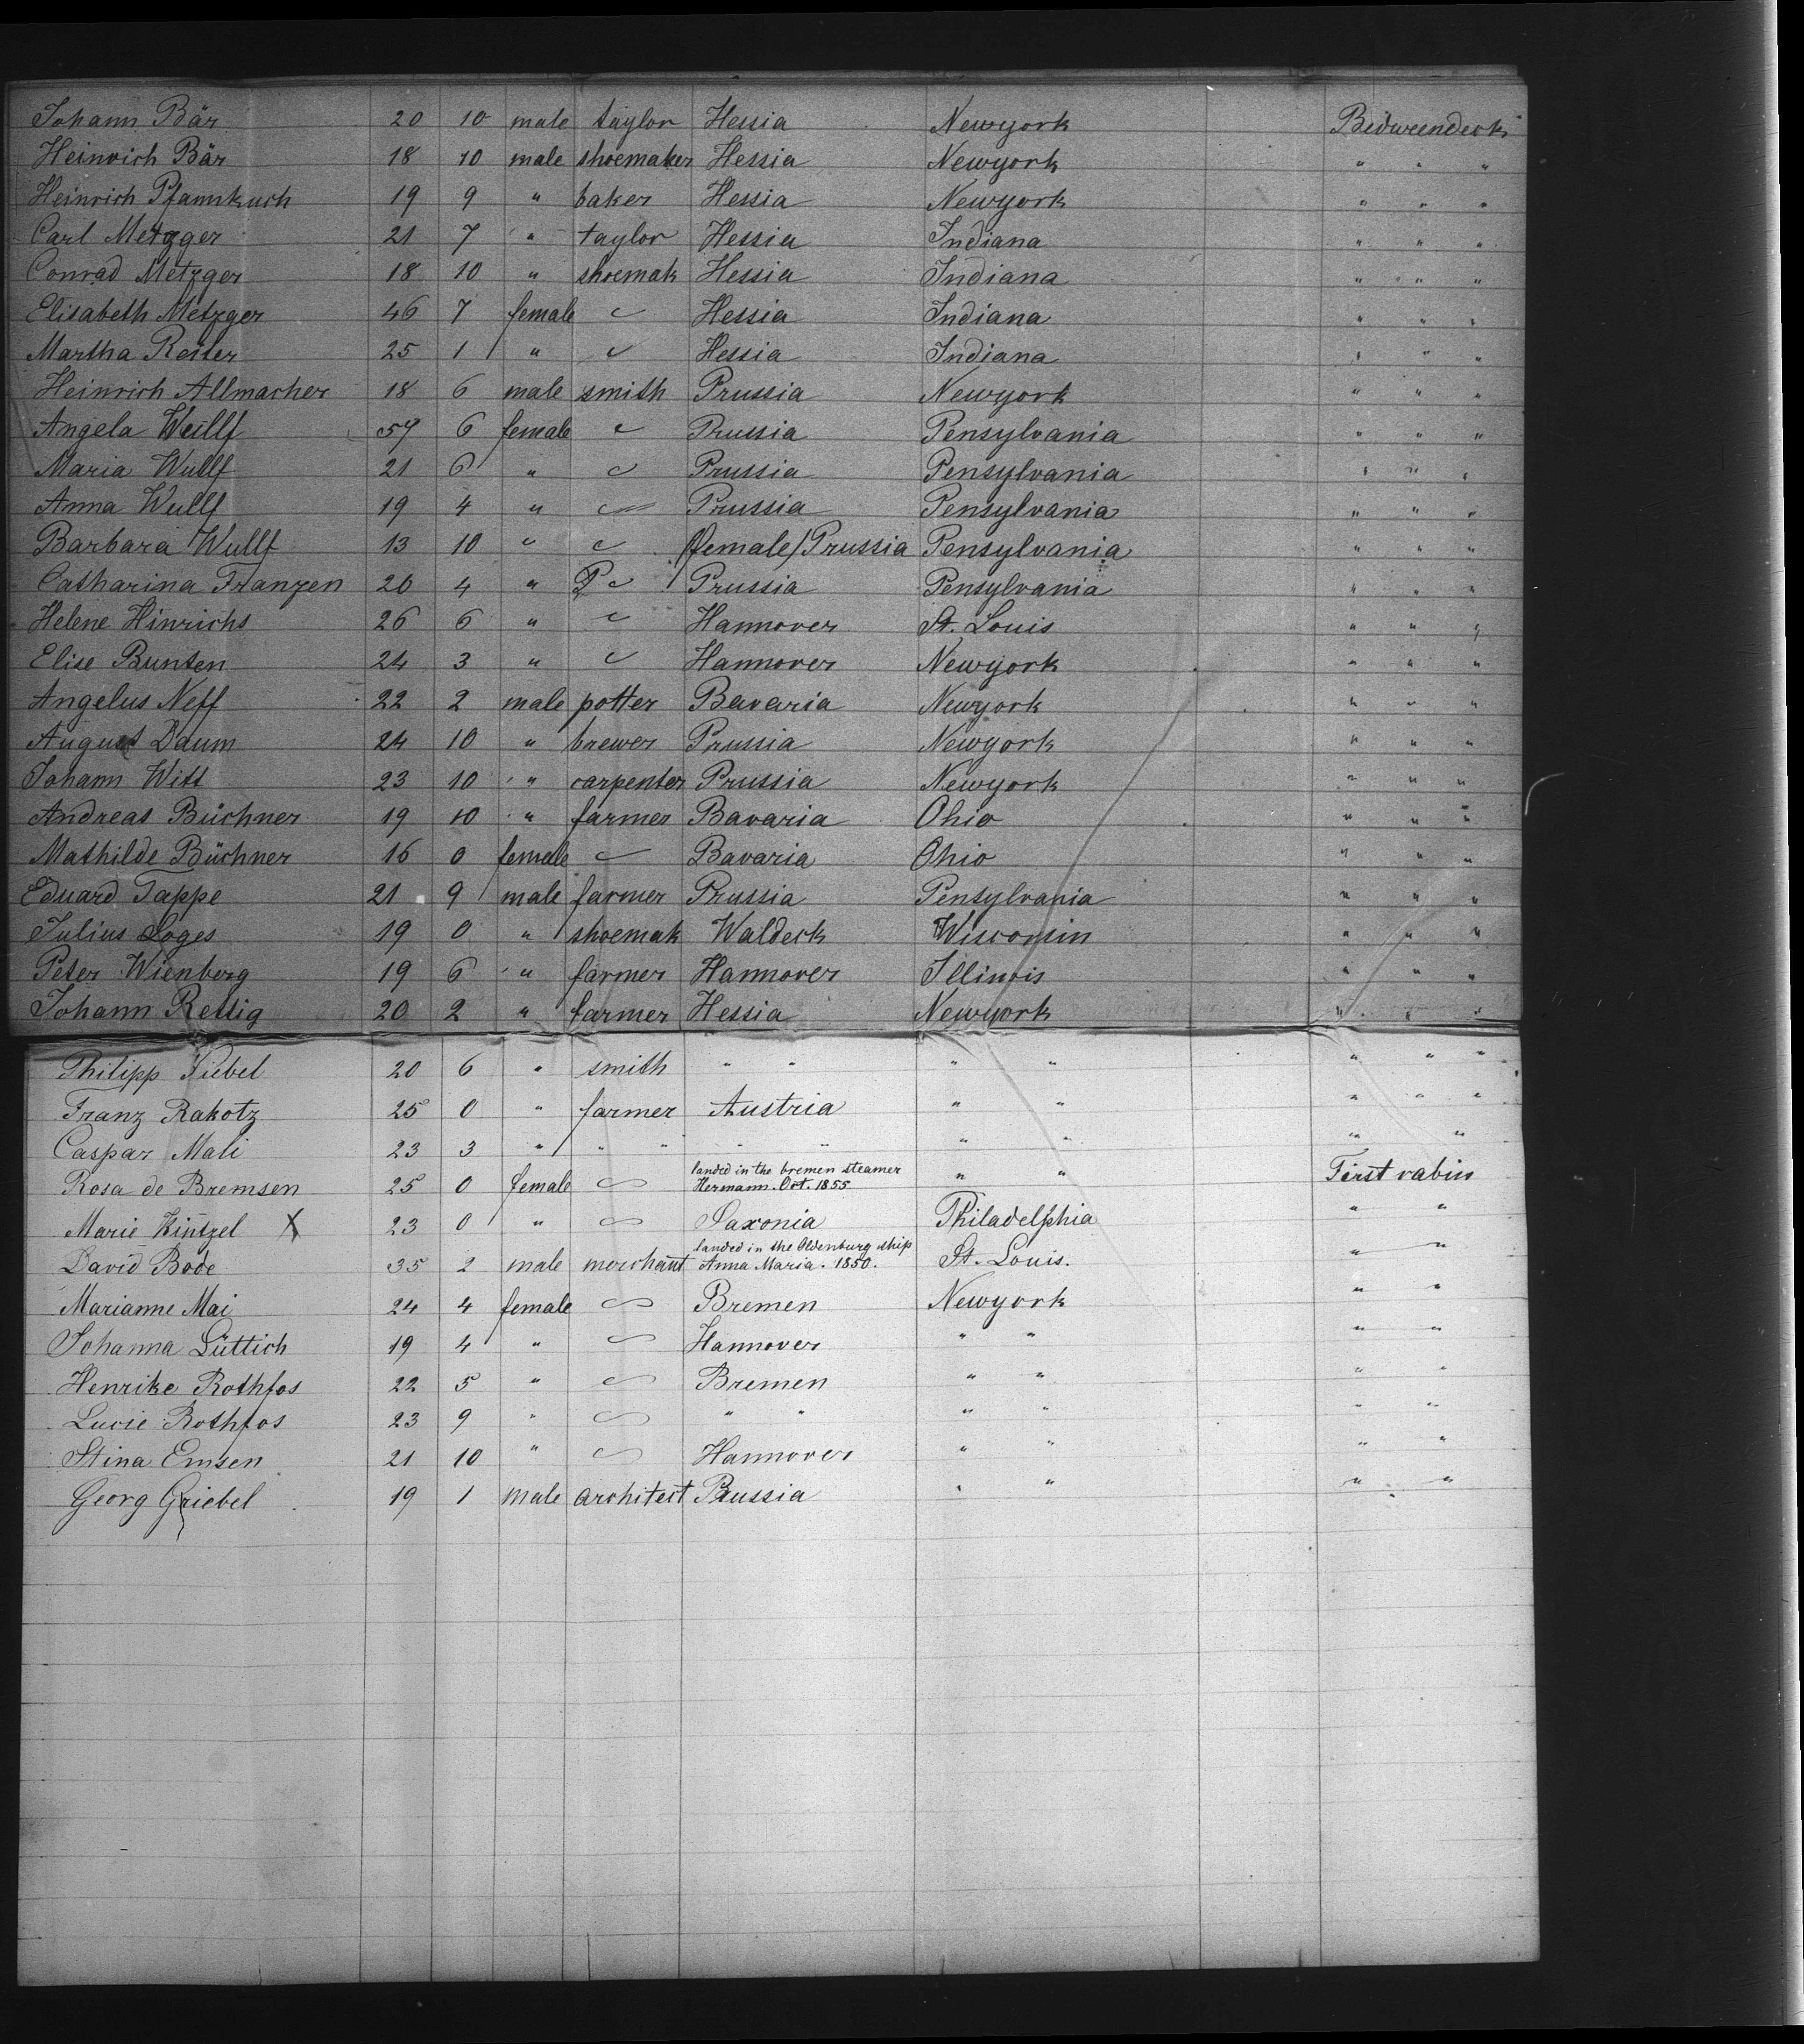 Johann Bär 20 10 male taylor Hessia Newyork Bedweendeck
Heinrich Bär 18 10 male shoemaker Hessia Newyork " " "
Heinrich Pfannkuch 19 9 " baker Hessia Newyork " " "
Carl Metzger 21 7 " taylor Hessia Indiana " " "
Conrad Metzger 18 10 " shoemak Hessia Indiana " " "
Elisabeth Metzger 46 7 female Hessia Indiana " " "
Martha Reiter 25 1 " Hessia Indiana " " "
Heinrich Allmacher 18 6 male smith Prussia Newyork " " "
Angela Wullf 57 6 female Prussia Pensylvania " " "
Maria Wullf 21 6 " Prussia Pensylvania " " "
Anna Wullf 19 4 " Prussia Pensylvania " " "
Barbara Wullf 13 10 " female/Prussia Pensylvania " " "
Catharina Franzen 20 4 " Prussia Pensylvania " " "
Helene Hinrichs 26 6 " Hannover St. Louis " " "
Elise Bunten 24 3 " Hannover Newyork " " "
Angelus Neff 22 2 male potter Bavaria Newyork " " "
August Daum 24 10 " brewer Prussia Newyork " " "
Johann Witt 23 10 " carpenter Prussia Newyork " " "
Andreas Büchner 19 10 " farmer Bavaria Ohio " " "
Mathilde Büchner 16 0 female Bavaria Ohio " " "
Eduard Tappe 21 9 male farmer Prussia Pensylvania " " "
Julius Loges 19 0 " shoemak Waldeck Wisconsin " " "
Peter Wienberg 19 6 " farmer Hannover Illinois " " "
Johann Rettig 20 2 " farmer Hessia Newyork " " "
Philipp Siebel 20 6 " smith " " " " " " "
Franz Rakotz 25 0 " farmer Austria " " " " "
Caspar Mali 23 3 " " " " " " " " "
landed in the bremen steamer
Rosa de Bremsen 25 0 female Hermann. Oct. 1855 " " First cabin
Marie Kintzel X 23 0 " Saxonia Philadelphia " "
landed in the Oldenburg ship
David Bode 35 2 male merchant Anna Maria. 1850. St. Louis. " "
Marianne Mai 24 4 female Bremen Newyork " "
Johanna Lüttich 19 4 " Hannover " " " "
Henrike Rothfos 22 5 " Bremen " " " "
Lucie Rothfos 23 9 " " " " " " "
Stina Emsen 21 10 " Hannover " " " "
Georg Griebel 19 1 male architect Prussia " " " "